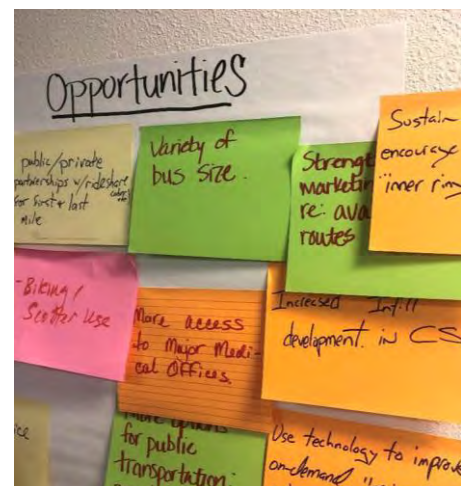 Opportunities
public/private
partnerships w/rideshare
for first + last
mile
Variety of
bus size.
Strengt
marketin
re: ava
routes
Sustain
encourage
"inner ring
-Biking/
Scooter Use
More access
to Major Medi-
cal Offices.
Increased Infill
development in CS
ice
More options
for public
transportation
Use technology to improve
on-demand